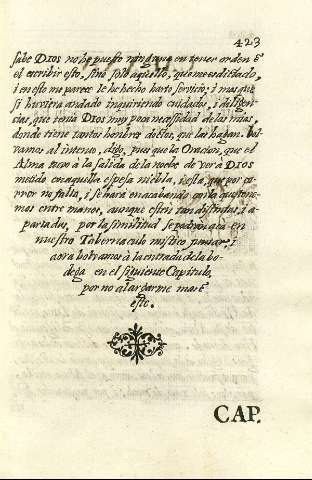 423
sabe DIOS no he puesto ninguno en tener orden ē
el escribir esto, sino solo aquello, que me es dictado,
i en esto me parece le he hecho harto servicio; i mas que
si huviera andado inquiriendo cuidados, i diligen-
cias, que tenia DIOS mui poca necessidad de las mias,
donde tiene tantos hombres doctos, que las hagan. Bol-
vamos al intento, digo, pues que la Oracion, que el
Alma tuvo à la salida de la noche de ver à DIOS
metido en aquella espesa niebla, i esta, que por ca-
no falta, i se hará en acabando con la que tene-
mos entre manos, aunque estén tan distintas, i a-
partadas, por la similitud se podran acà en
nuestro Tabernaculo mistico pensar; i
aora bolvamos à la entrada de la bo-
dega en el siguiente Capitulo,
por no alargarme mas ē
este.
CAP.